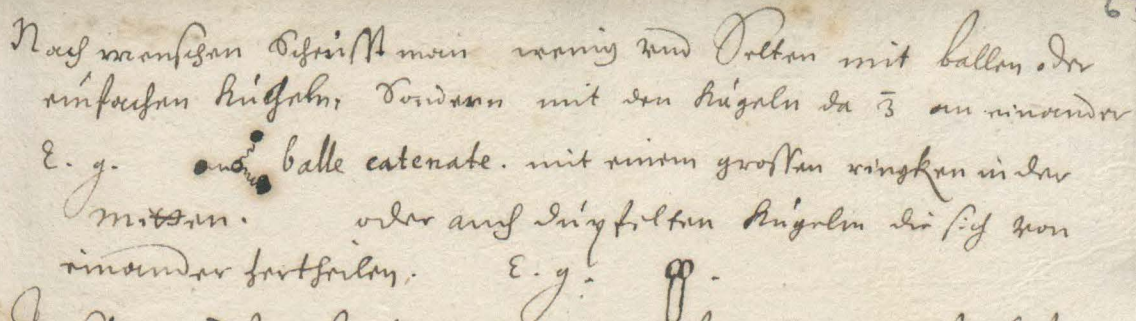 Nach menschen Scheüsst man wenig vnd Selten mit ballen oder
einfachen Kugeln, Sondern mit den Kugeln da 3 an einander
E. g. balle catenate. mit einem grossen ringken in der
mitten. oder auch düpfelten Kugeln die sich von
einander zertheilen. E. g.